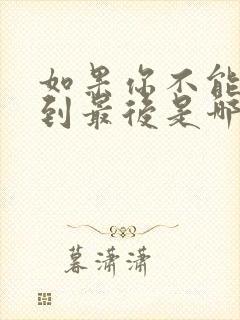 如果你不能
到最後是哪
暮潇潇